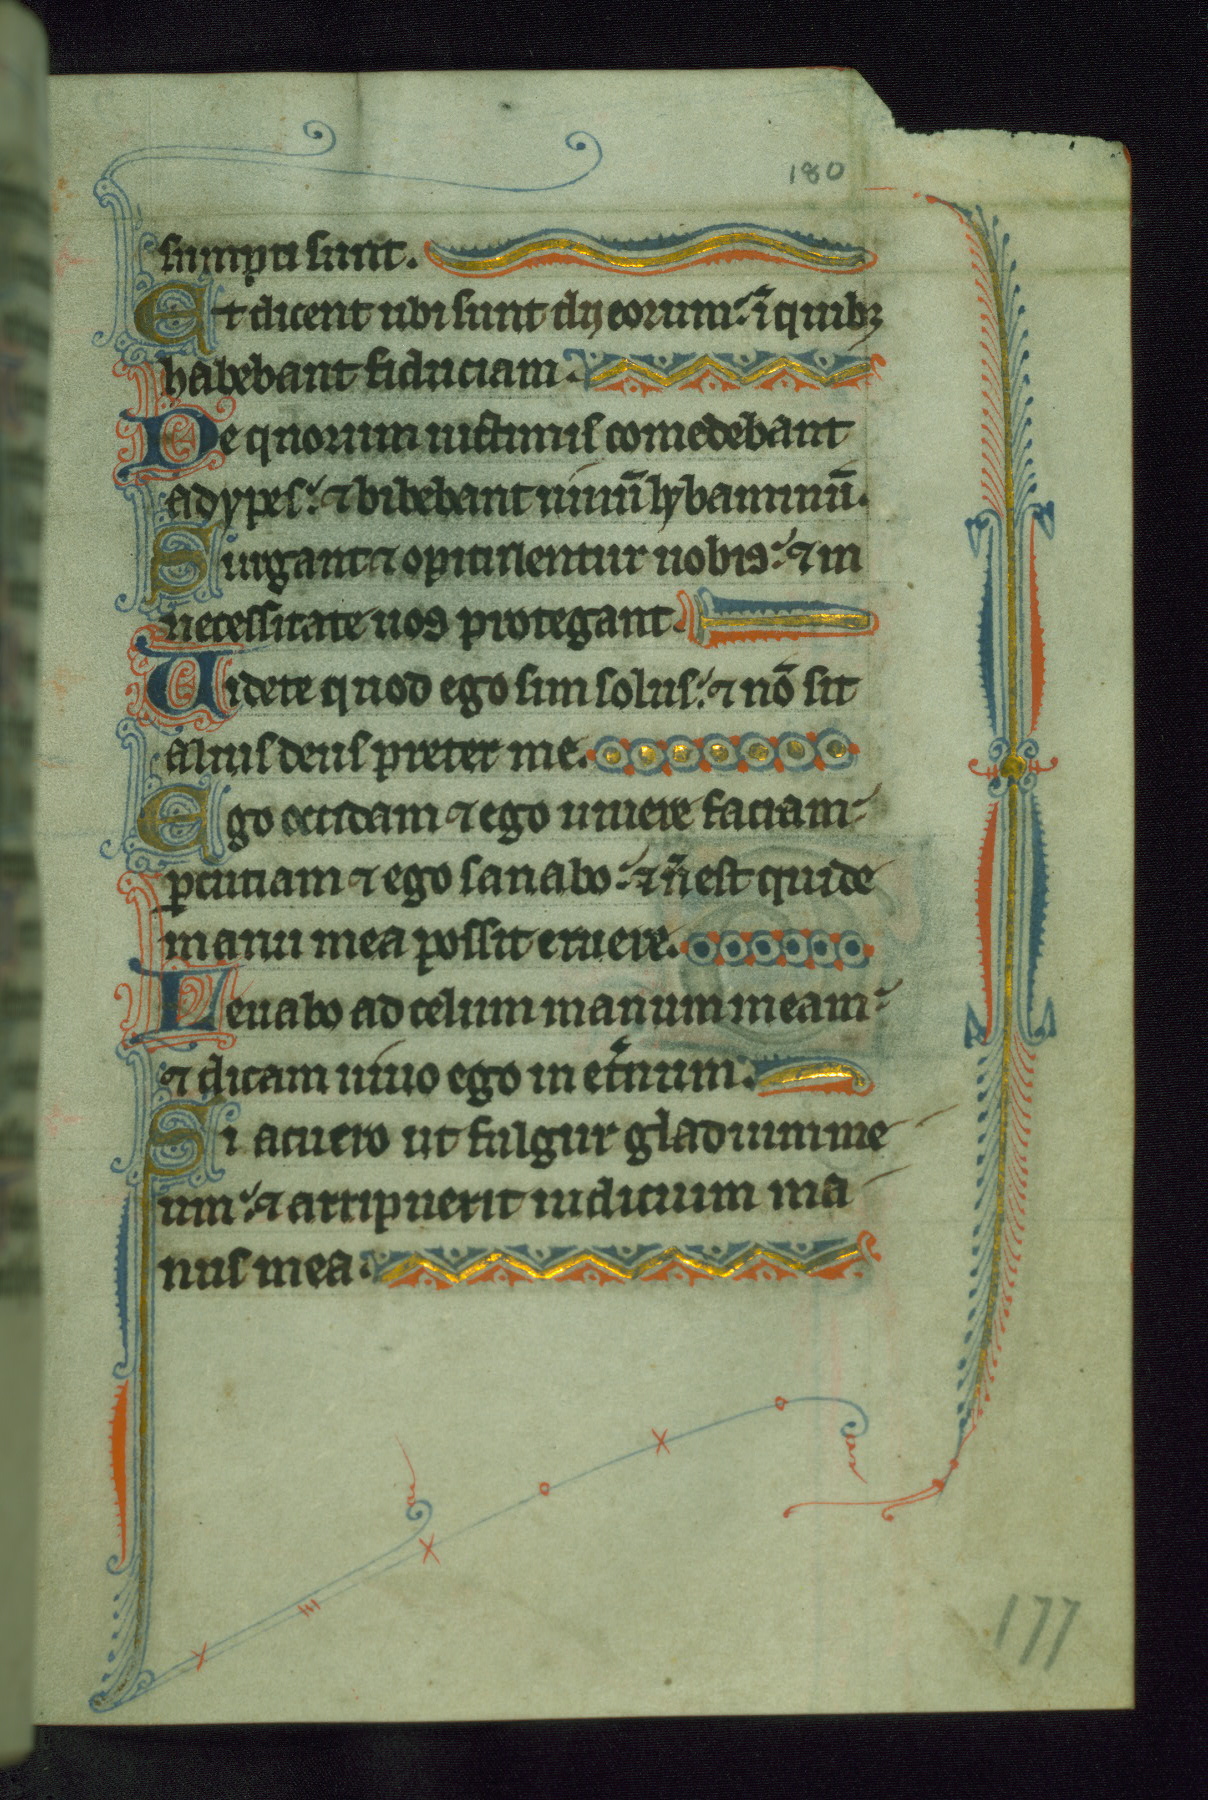 180
sumpti sunt.
Et dicent ubi sunt dij eorum: ĩ quibꝫ
habebant fiduciam.
De quorum uictimis comedebant
adypes: ⁊ bibebant uinũ lybaminũ.
Surgant ⁊ opitulentur uobis: ⁊ in
necessitate uos protegant.
Uidete quod ego sim solus: ⁊ nõ sit
alius deus preter me.
Ego occidam ⁊ ego uiuere faciam:
ꝑcutiam ⁊ ego sanabo: ⁊ ñ est qui de
manu mea possit eruere.
Leuabo ad celum manum meam:
⁊ dicam uiuo ego in et̃num.
Si acuero ut fulgur gladium me
um: ⁊ arripuerit iudicium ma
nus mea.
177